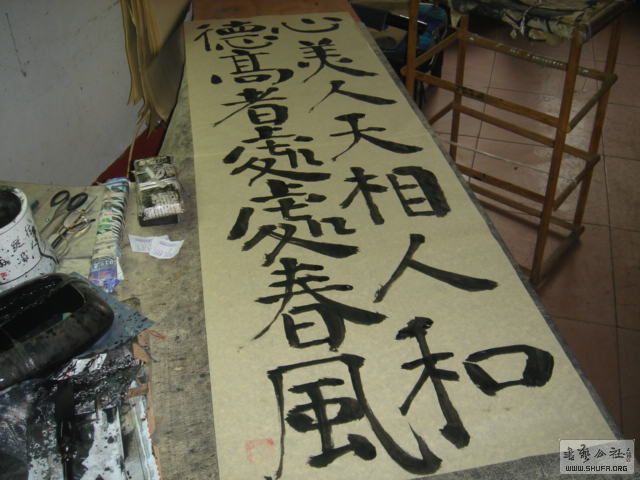 心美人天相人和
德高者處處春風
WWW.SHUFA.ORG